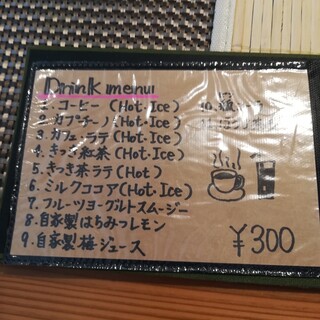 Drink menu
1. コーヒー (Hot・Ice)
2. カプチーノ (Hot・Ice)
3. カフェ・ラテ (Hot・Ice)
4. きっき紅茶 (Hot・Ice)
5. きっき紅茶ラテ (Hot)
6. ミルクココア (Hot・Ice)
7. フルーツヨーグルトスムージー
8. 自家製はちみつレモン
9. 自家製梅ジュース
10.
¥300